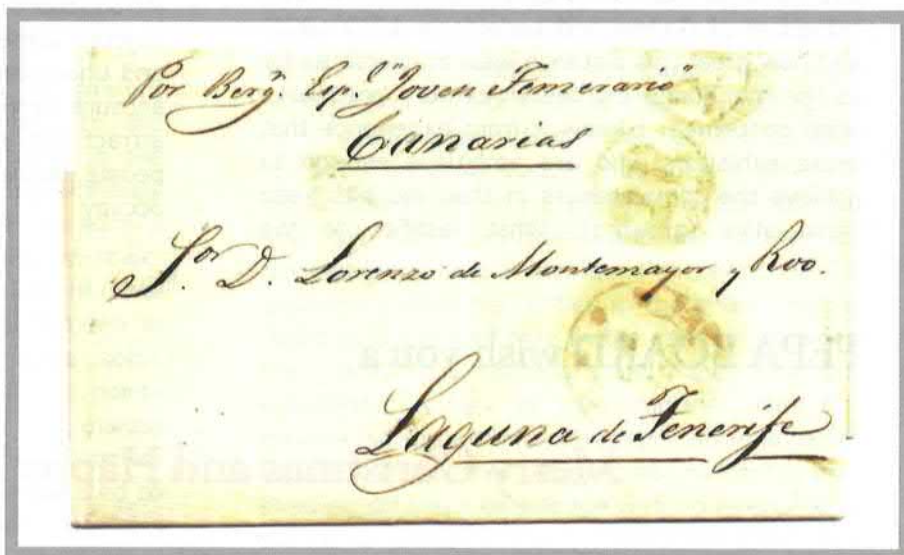 Por Bergn. Espl. "Joven Temerario"
Canarias
Sor. D. Lorenzo de Montemayor y Roo.
Laguna de Tenerife